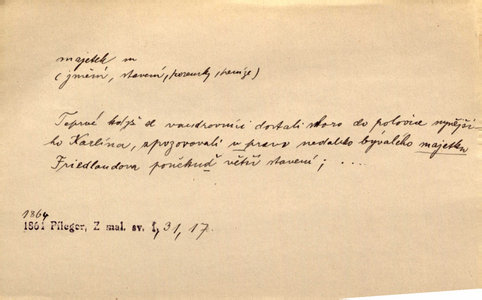 majetek m
(jmění, stavení, pozemky, peníze)
Teprvé když se vandrovníci dostali skoro do polovice nynější-
ho Karlína, zpozorovali v pravo nedaleko bývalého majetku
Friedlandova poněkud větší stavení; ....
1864
1861 Pfleger, Z mal. sv. I, 31, 17.